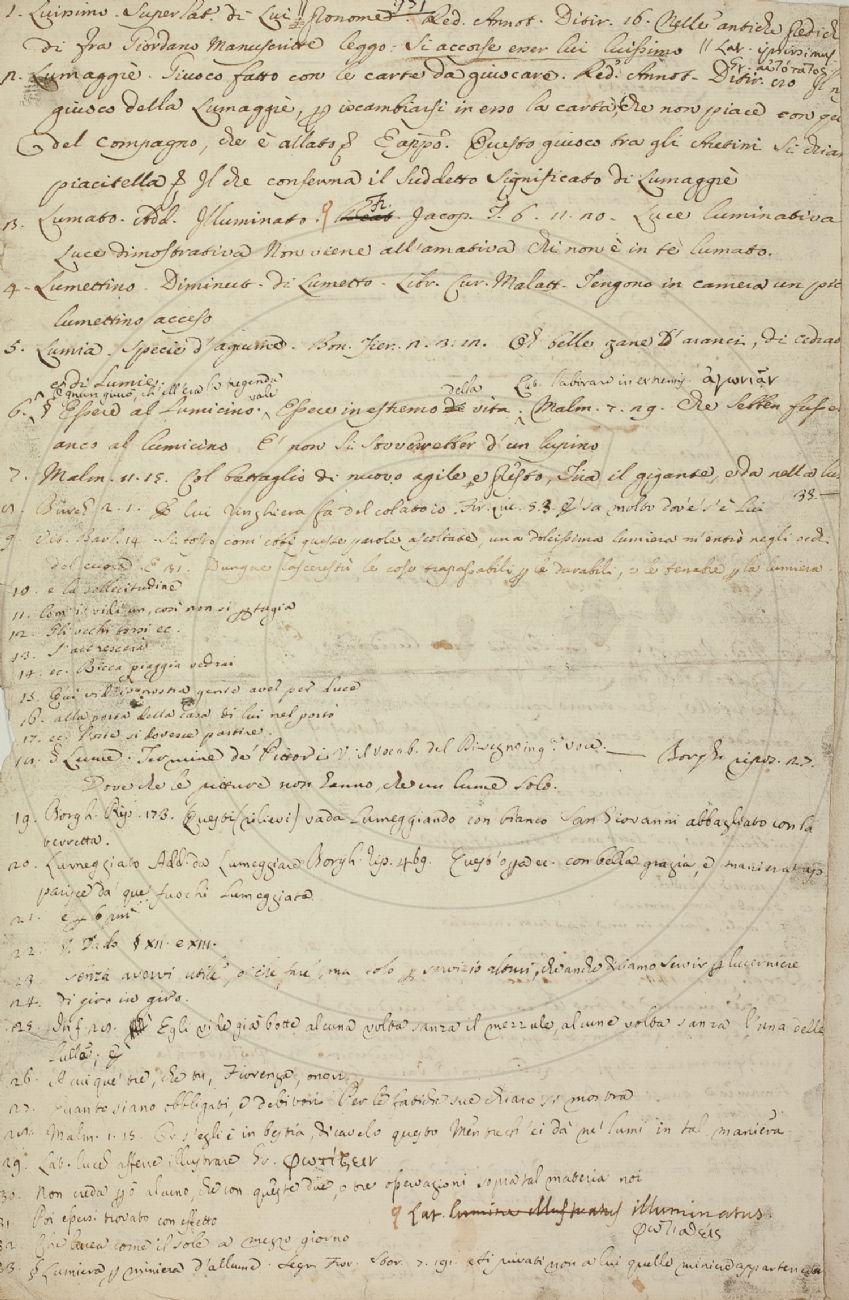 951
1. Luissimo. Superlat. di Lui Pronome. Red. Annot. Ditir. 16. Nelle antiche Predich
di fra Giordano Manuscritte leggo: Si accorse esser lui luissimo || Lat. ipsissimus
Gr. αὐτότατος
2. Lumaggiè. Giuoco fatto con le carte da giuocare. Red. Annot. Ditir.
giuoco della Lumaggiè, p iscambiarsi in esso la carta, che non piace con
del compagno, che è allato E appo. Questo giuoco tra gli Aretini si chiam
piacitella Il che conferma il suddetto significato di Lumaggiè
3. Lumato. Add. Illuminato. Fr. Jacop. T. 6. 11. 20. Luce luminativa
Luce dimostrativa Non viene all'amativa Chi non è in te lumato.
4. Lumettino. Diminut. di Lumetto. Libr. Cur. Malatt. Tengono in camera un pic
lumettino acceso
5. Lumia. Spezie d'agrume. Bon. Fier. 2. 3. 12. Oh belle zane D'aranci, di cedrat
e di Lumie.
della Lat. laborare in extremis. ἀγωνιᾶν
6. § Essere al Lumicino. vale Essere in estremo de vita. Malm. 7. 29. Che sebben fusse
anco al lumicino E' non si sovverrebbe d'un lupino
7. Malm. 11. 15. Col battaglio di nuovo agile, e presto, Tira il gigante, e da nella lu
8. Burch. 2. 1. E lui Inghilterra fa del colatoio. Fir. Luc. 5. 3. E' sa molto dov'e' s'è lui 38
9. Vit. Barl. 14. Si tosto com' ebbe queste parole ascoltate, una dolcissima lumiera m'entrò negli occhi
del cuore. E 31. Dunque lasceresti le cose trapassabili p le durabili, e le tenebre p la lumiera
10. e la sollecitudine
11. com' i' vidi un, così non si pertugia
12. Gli occhi torvi ec.
13. S'accrescerà
14. ec. Ricca piaggia vedrai
15. Qui vidi nostra gente aver per duce
16. alla porta della casa di lui nel portò
17. ec. Forte si dovesse partire.
18. § Lume. Termine de' Pittori V. il vocab. del Disegno in q. voce. — Borgh. ripos. 27.
Dove che le pitture non hanno, che un lume solo.
19. Borgh. Rip. 173. Questi (rilievi) vada lumeggiando con bianco San Giovanni abbagliato con la
berretta.
20. Lumeggiato Add. da Lumeggiare Borgh. Rip. 469. Quest' opa ec. con bella grazia, e maniera ap
parisce da que' fuochi lumeggiata
21. e
22. V. Tedo § XII. e XIII.
23. senza avervi utile, o che fare, ma solo p servizio altrui, che anche diciamo servir p lucerniere
24. di giro in giro.
25. Inf. 28. Egli vide già botte alcuna volta sanza il mezzule, alcune volta sanza l'una delle
lulle;
26. A cui que' tre, che tu, Fiorenza, onori
27. quanto siano obbligati, e debitori Per le fatiche sue chiaro si mostra
28. Malm. 1. 15. Or s'egli è in bestia, dicavelo questo Mentrech' ei dà ne' lumi in tal maniera
29. Lat. lucem afferre illustrare Gr. φωτίζειν
30. Non creda però alcuno, che con queste due, o tre operazioni sopra tal materia noi
31. Poi essersi trovato con effetto Lat. illuminatus.
φωτισθείς
32. Che lucea come il sole a mezzo giorno
33. § Lumiera p miniera d'allume. Segn. Fior. Stor. 7. 191. Ai privati non a lui quelle miniere appartenevan